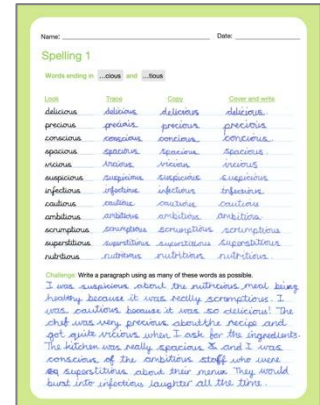 Name: Date:
Spelling 1
Words ending in ...cious and ...tious
Look Trace Copy Cover and write
delicious delicious delicious delicious
precious precious precious precious
conscious conscious concious concious
spacious spacious spacious spacious
vicious vicious vicious vicious
suspicious suspicious suspicious suspicious
infectious infectious infectious infectious
cautious cautious cautious cautious
ambitious ambitious ambitious ambitious
scrumptious scrumptious scrumptious scrumptious
superstitious superstitious superstitious superstitious
nutritious nutritious nutrition nutrition
Challenge: Write a paragraph using as many of these words as possible.
I was suspicious about the nutricious meal being
healthy because it was really scromptious. I
was cautious because it was so delicious! The
chef was very precious about the recipe and
got quite vicious when I ask for the ingredients.
The kitchen was really spacious & and I was
conscious of the ambitious staff who were
superstitious about their menu. They would
burst into infectious laughter all the time.